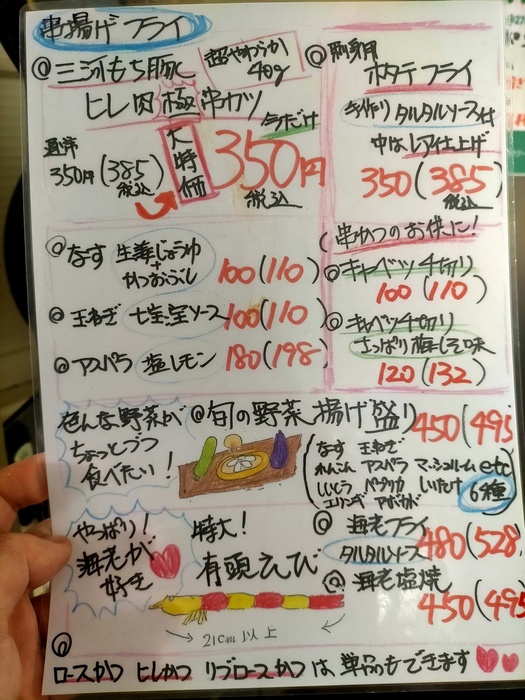 串揚げフライ
◎三河もち豚 超やわらか 40g
ヒレ肉 極 串カツ
通常 350円(385) 税込
大特価
今だけ
350円 税込
◎刺身用
ホタテフライ
手作り タルタルソース付
中はレア仕上げ
350(385) 税込
◎なす 生姜じょうゆ + かつおぶし 100(110)
◎玉ねぎ 七宝ソース 100(110)
◎アスパラ 塩レモン 180(198)
串かつのお供に!
◎キャベツ千切り
100(110)
◎キャベツ千切り
さっぱり梅しそ味
120(132)
色んな野菜が
ちょっとづつ
食べたい!
◎旬の野菜 揚げ盛り 450(495
なす 玉ねぎ
れんこん アスパラ マッシュルーム etc
しいたけ
エリンギ アボカド
6種
やっぱり!
海老が
好き
特大!
有頭えび
21cm以上
◎海老フライ
タルタルソース 480(528)
◎海老塩焼
450(495
◎
ロースかつ ヒレかつ リブロースかつ は 単品もできます